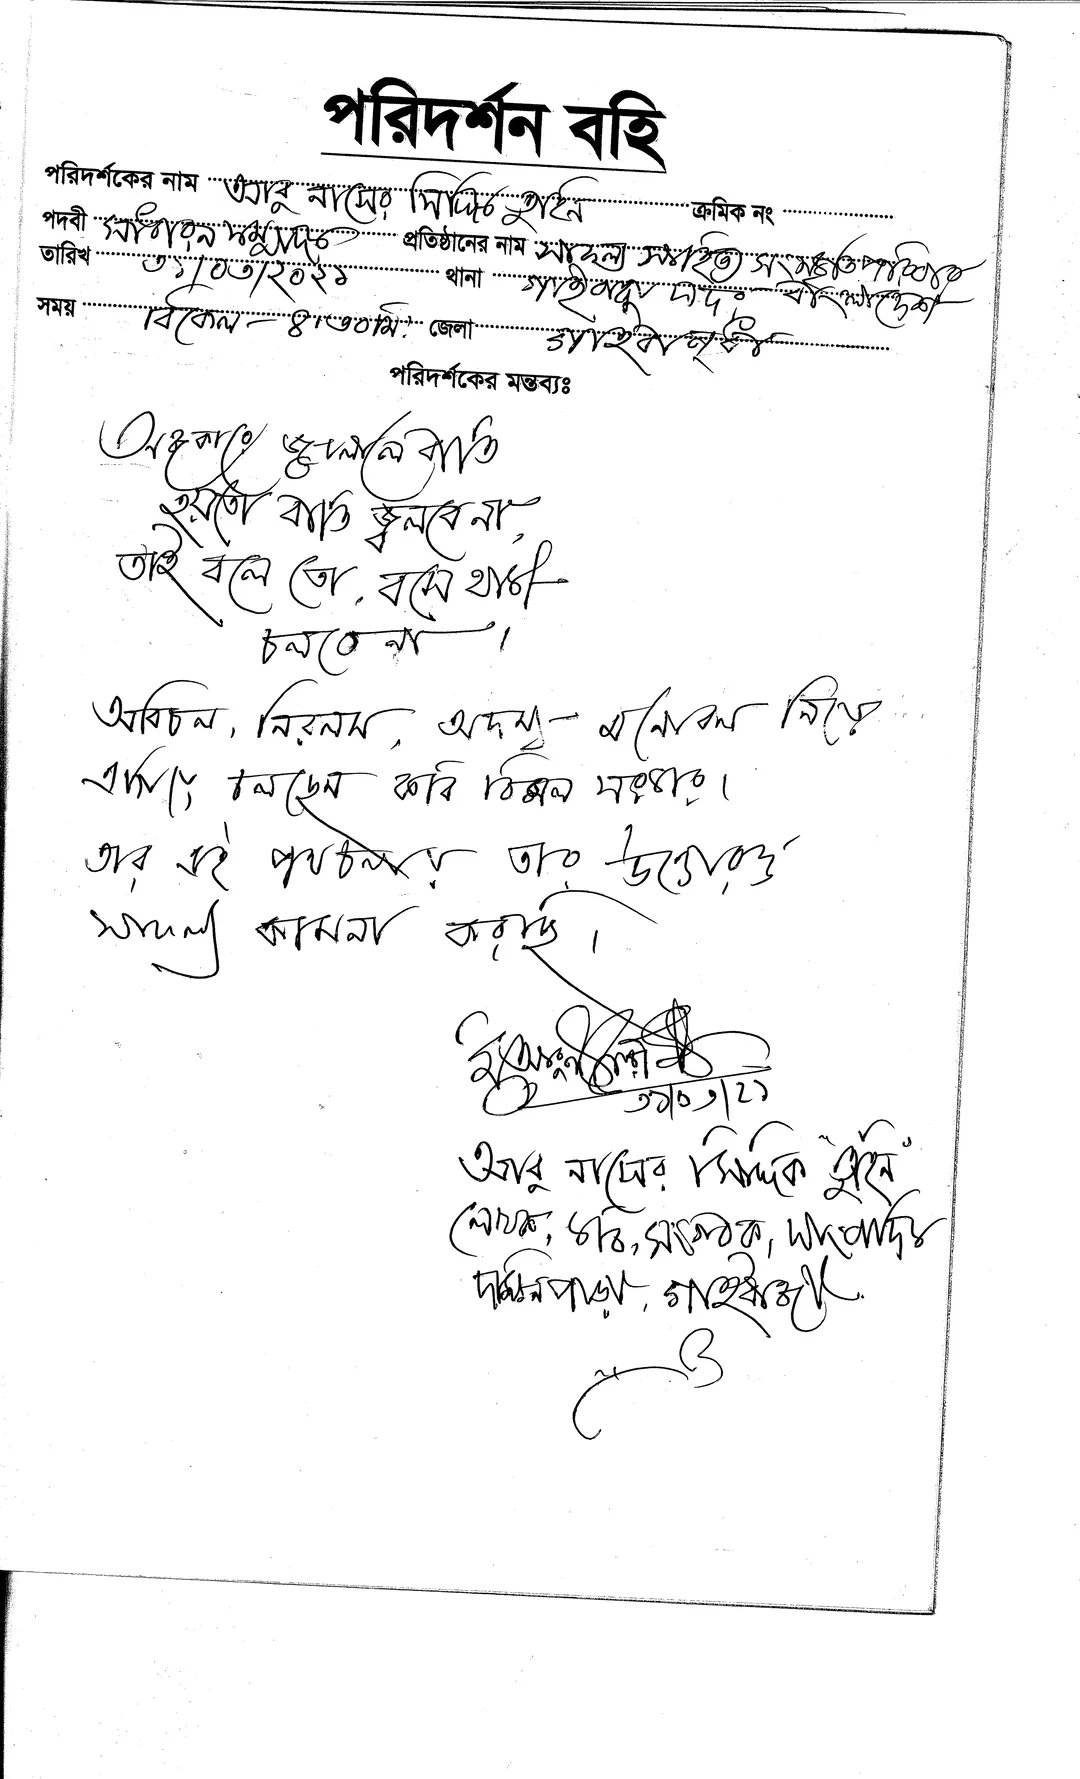 পরিদর্শন বহি
পরিদর্শকের নাম আবু নাসের সিদ্দিক তুহিন ক্রমিক নং
পদবী সাধারন সম্পাদক প্রতিষ্ঠানের নাম সাফল্য সাহিত্য সংস্কৃতি পরিবার
তারিখ ৩১/০৩/২০২১ থানা গাইবান্ধা সদর, বাংলাদেশ
সময় বিকেল - ৪:৩০মি: জেলা গাইবান্ধা
পরিদর্শকের মন্তব্যঃ
অন্ধকারে জ্বললে বাতি
হয়তো বাতি জ্বলবে না,
তাই বলে তো, বসে থাকা
চলবে না।
অবিচল, নিরলস, অদম্য মনোবল নিয়ে
এগিয়ে চলছেন কবি বিমল সরকার।
তার এই পথচলায় তার উত্তোরত্তর
সাফল্য কামনা করছি।
৩১/০৩/২১
আবু নাসের সিদ্দিক "তুহিন"
লেখক, কবি, সংগঠক, সাংবাদিক
দক্ষিনপাড়া, গাইবান্ধা।